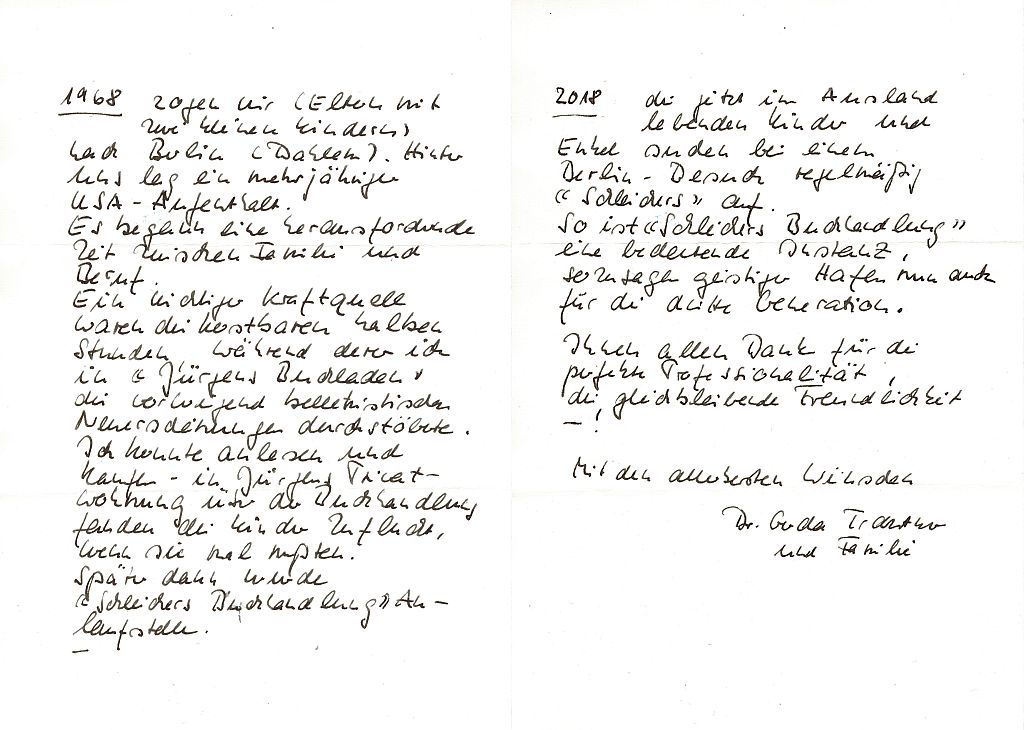 1968 zogen wir (Eltern mit
zwei kleinen Kindern)
nach Berlin (Dahlem). Hinter
uns lag ein mehrjähriger
USA-Aufenthalt.
Es begann eine herausfordernde
Zeit zwischen Familie und
Beruf.
Ein wichtiger Kraftquell
waren die kostbaren halben
Stunden, während derer ich
in «Jürgens Buchladen»
die vorwiegend belletristischen
Neuerscheinungen durchstöberte.
Ich konnte anlesen und
kaufen - in Jürgens Privat-
wohnung über der Buchhandlung
fanden die Kinder Zuflucht,
wenn sie mal mußten.
Später dann wurde
«Schleichers Buchhandlung» An-
laufstelle.
2018 die jetzt im Ausland
lebenden Kinder und
Enkel suchen bei einem
Berlin-Besuch regelmäßig
«Schleichers» auf.
So ist «Schleichers Buchhandlung»
eine bedeutende Instanz,
sozusagen geistiger Hafen nun auch
für die dritte Generation.
Ihnen allen Dank für die
perfekte Professionalität,
die gleichbleibende Freundlichkeit
– !
Mit den allerbesten Wünschen
Dr. Gerda
und Familie